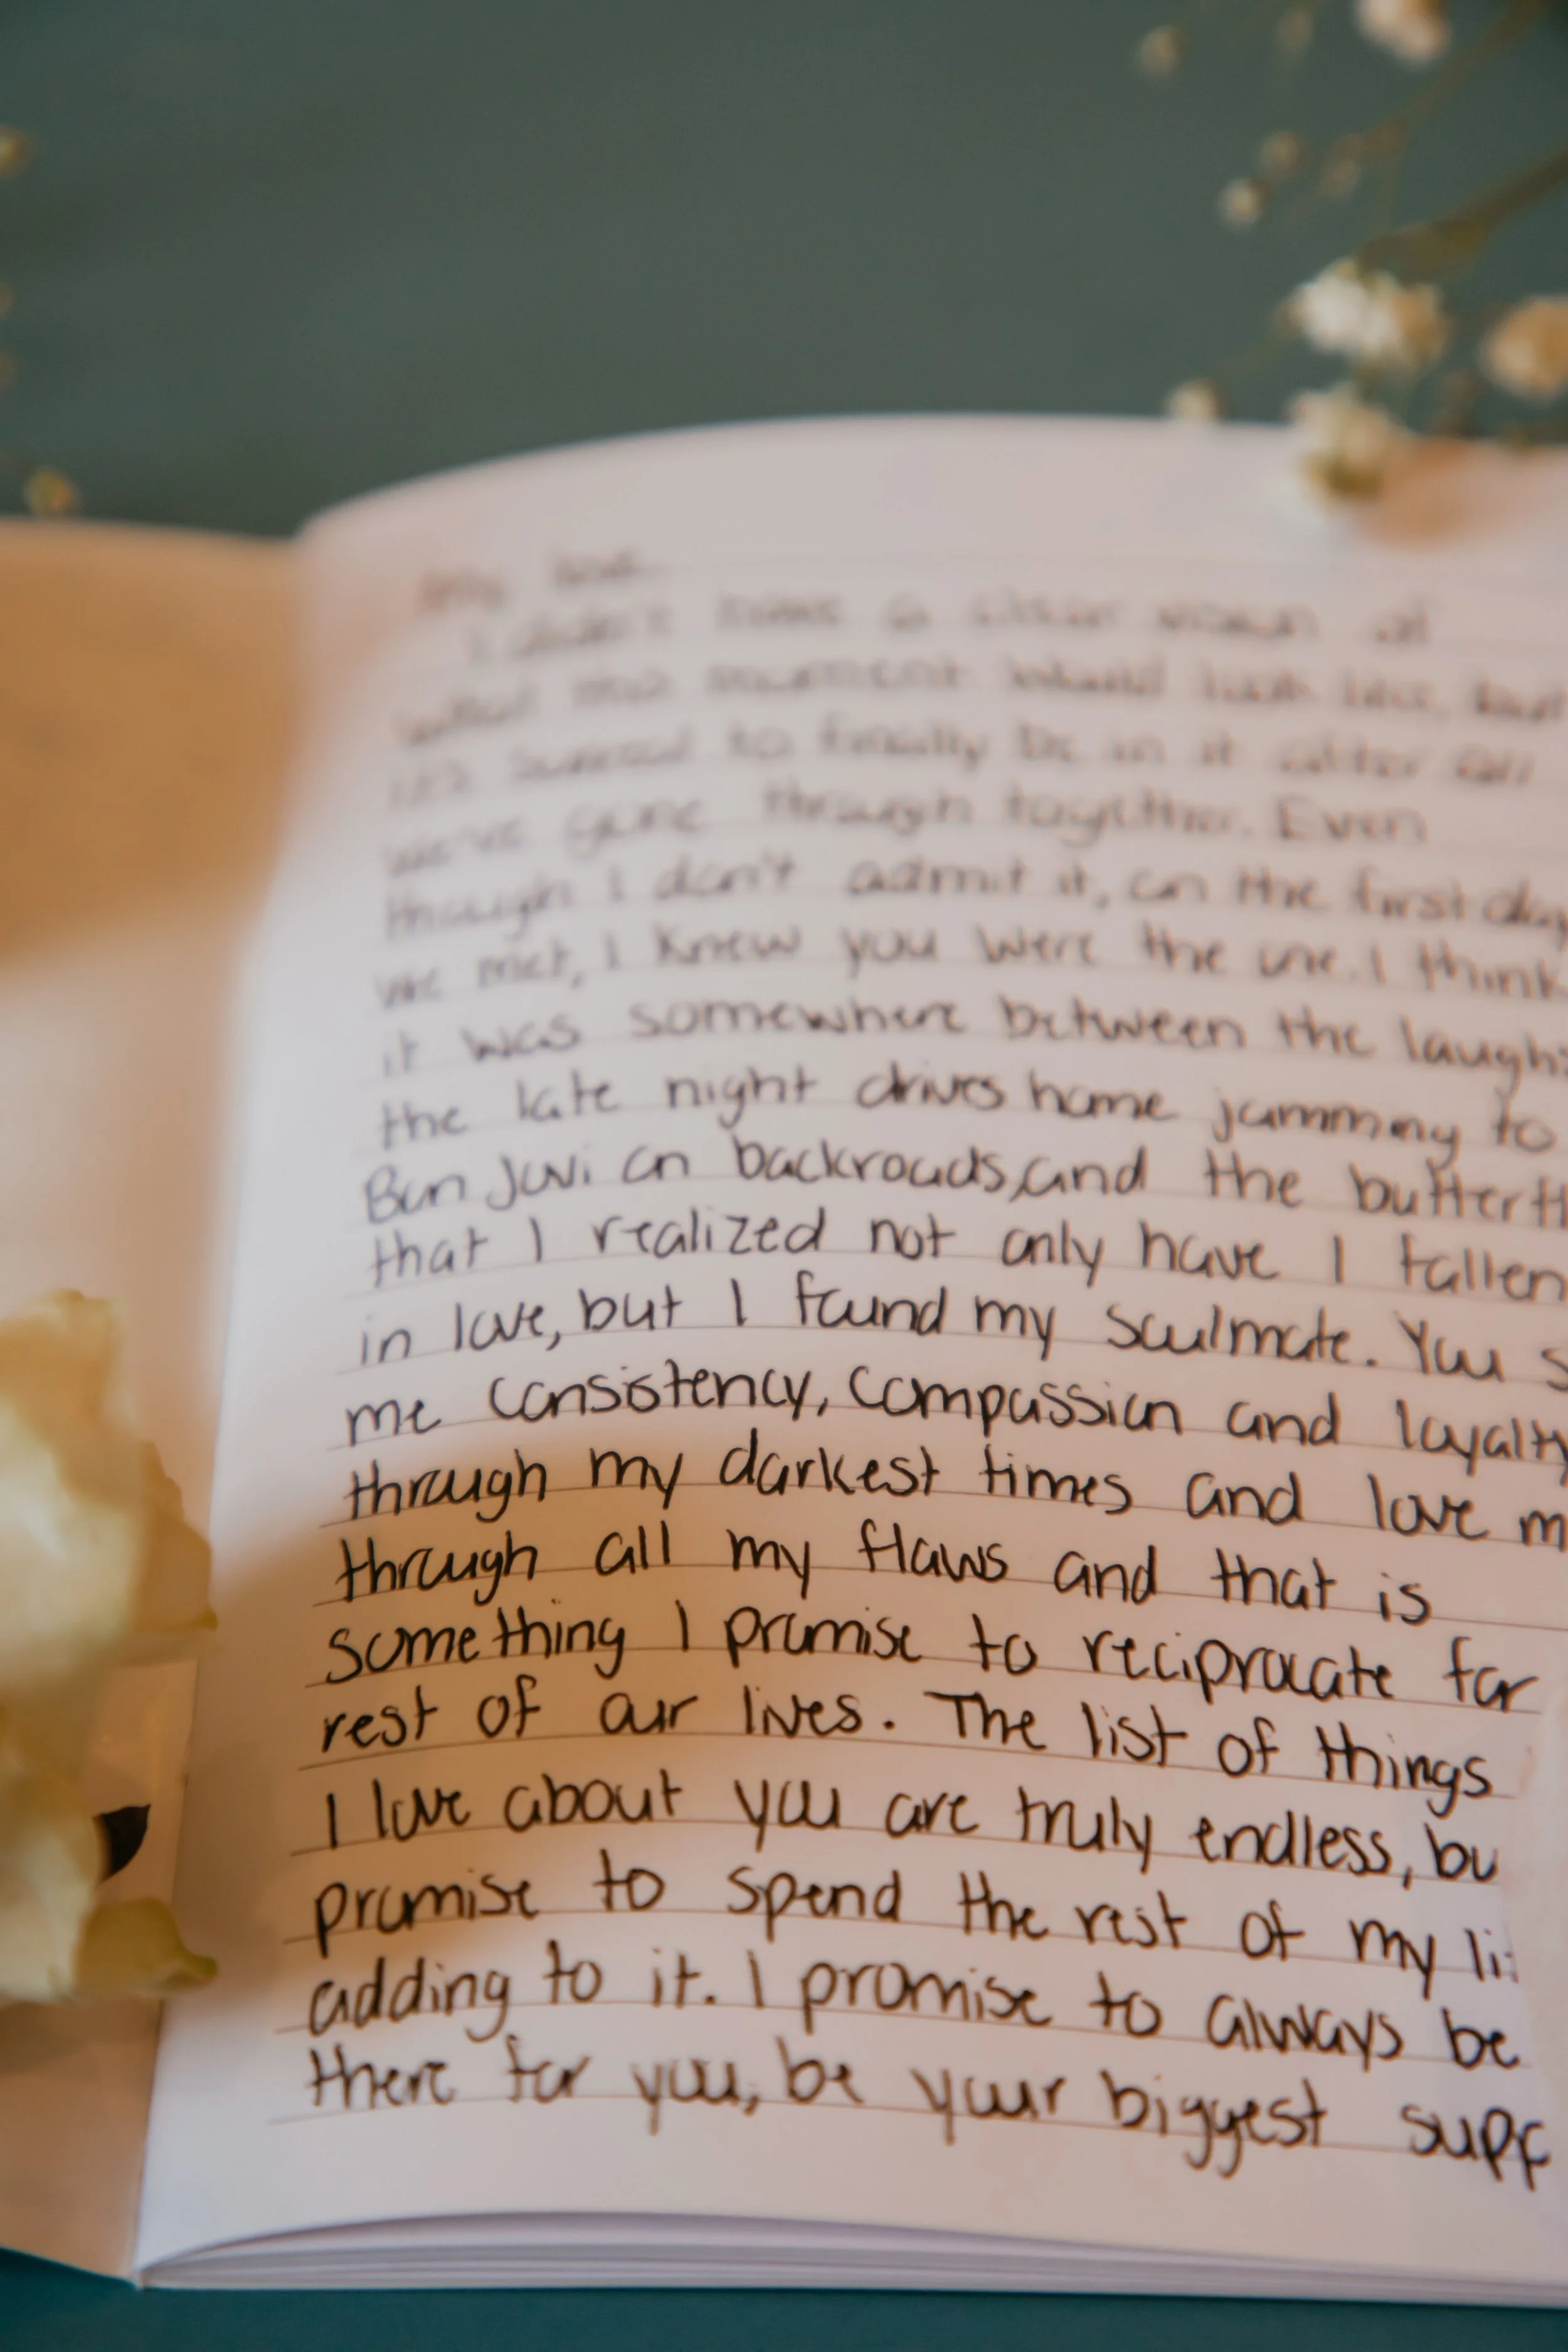 My love
I didn't have a clear vision of
what this moment would look like, but
it's surreal to finally be in it after all
we've gone through together. Even
though I don't admit it, on the first day
we met, I knew you were the one. I think
it was somewhere between the laughs
the late night drives home jamming to
Bon Jovi on backroads, and the butterfl
that I realized not only have I fallen
in love, but I found my soulmate. You s
me consistency, compassion and loyalty
through my darkest times and love m
through all my flaws and that is
something I promise to reciprocate for
rest of our lives. The list of things
I love about you are truly endless, bu
promise to spend the rest of my li
adding to it. I promise to always be
there for you, be your biggest supp